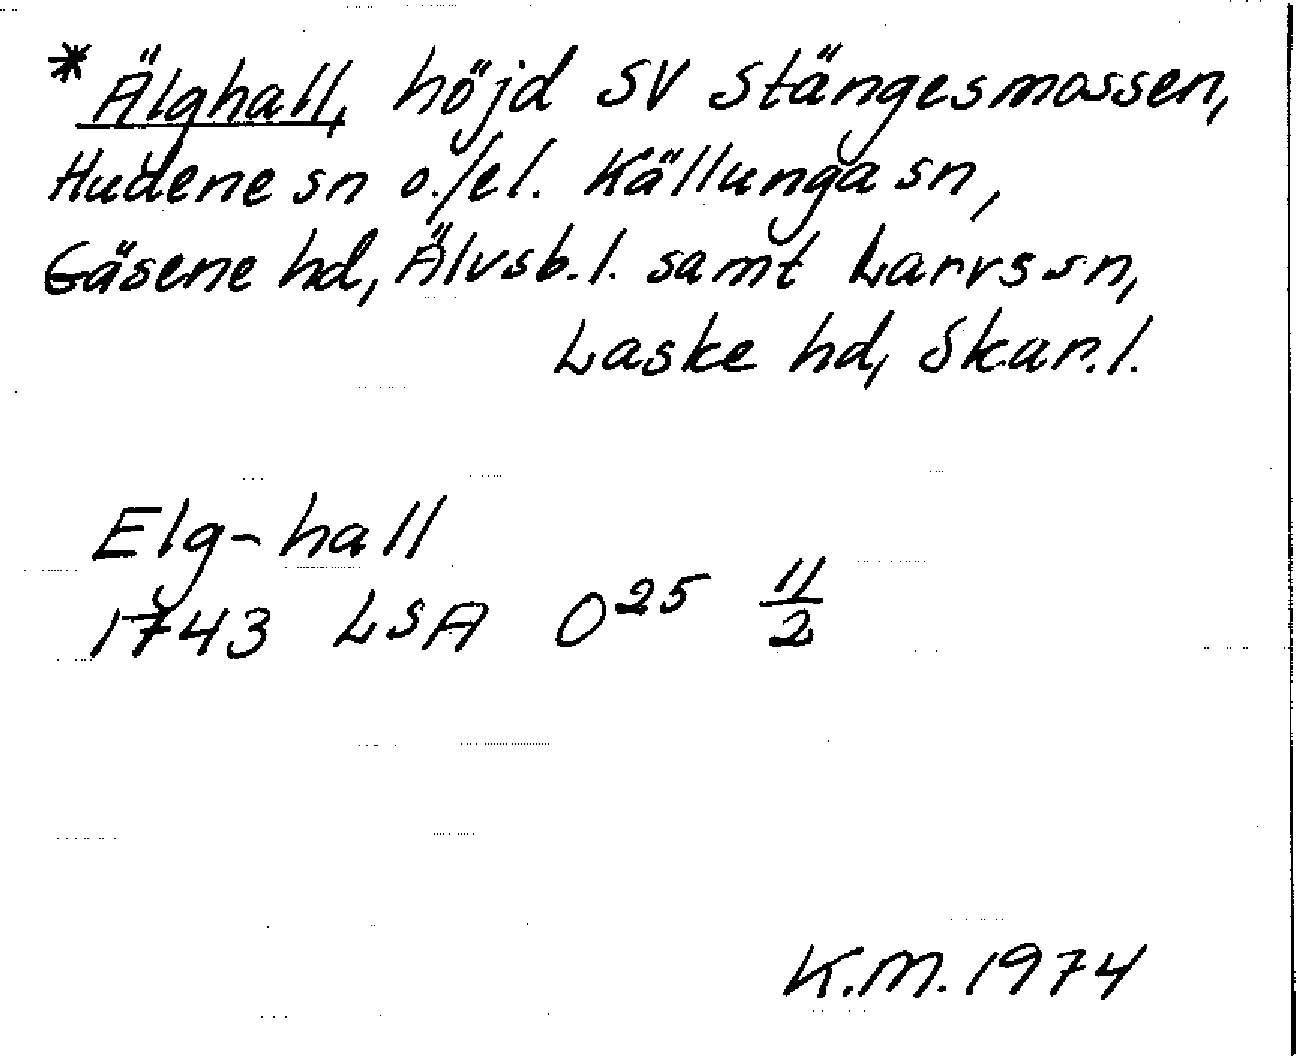 * Älghall, höjd SV Stängesmossen,
Hudene sn o./el. Källunga sn,
Gäsene hd, Älvsb. l. samt Larvs sn,
Laske hd, Skar. l.
Elg-hall
1743 LSA O25 11/2
K.M. 1974